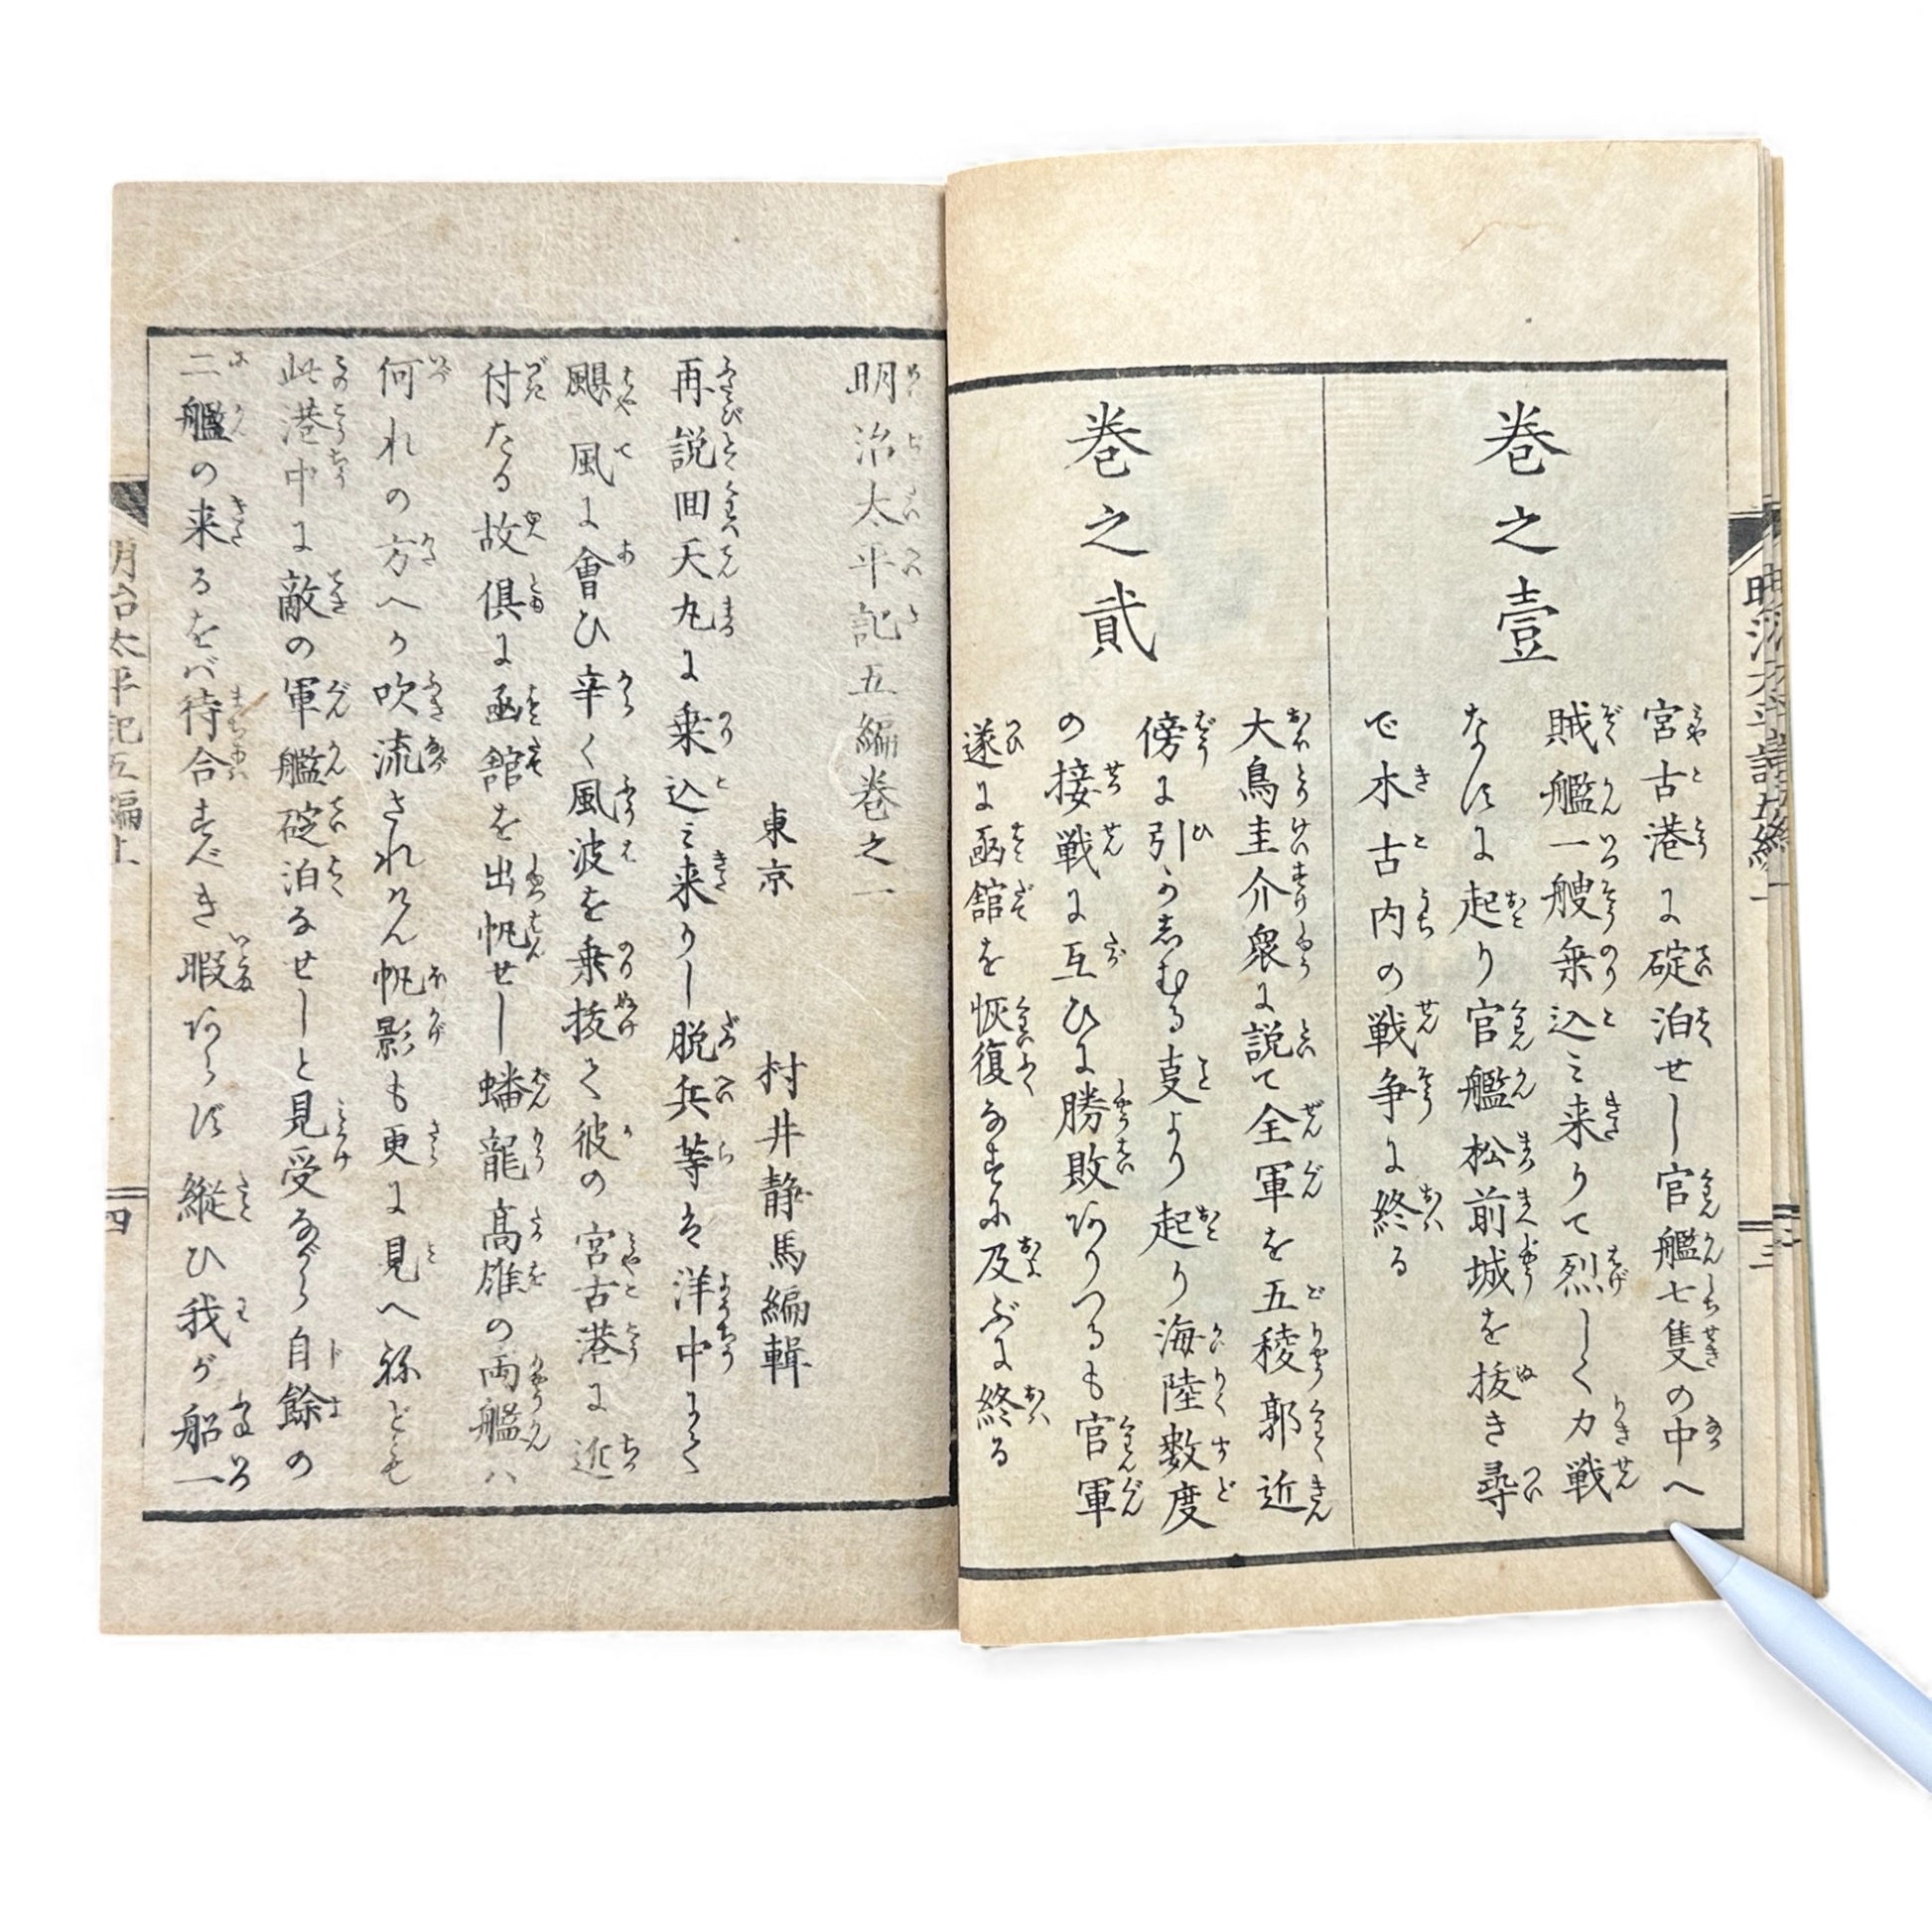 巻之壹
宮古港に碇泊せし官艦七隻の中へ
賊艦一艘乗込ミ来りて烈しく力戦
なすに起り官艦松前城を抜き尋
で木古内の戦争に終る
巻之貳
大鳥圭介衆に説て全軍を五稜郭近
傍に引かしむる叓より起り海陸数度
の接戦に互ひに勝敗ありつるも官軍
遂に函館を恢復なすに及ぶに終る
明治太平記五編巻之一
東京 村井静馬編輯
再説回天丸に乗込ミ来りし脱兵等は洋中にて
颶風に會ひ辛く風波を乗抜て彼の宮古港に近
付たる故倶に函館を出帆せし蟠龍髙雄の両艦ハ
何れの方へか吹流されけん帆影も更に見へ祢ども
此港中に敵の軍艦碇泊なせしと見受ながら自餘の
二艦の来るをバ待合すべき暇あらず縦ひ我が船一
明治太平記五編上
四